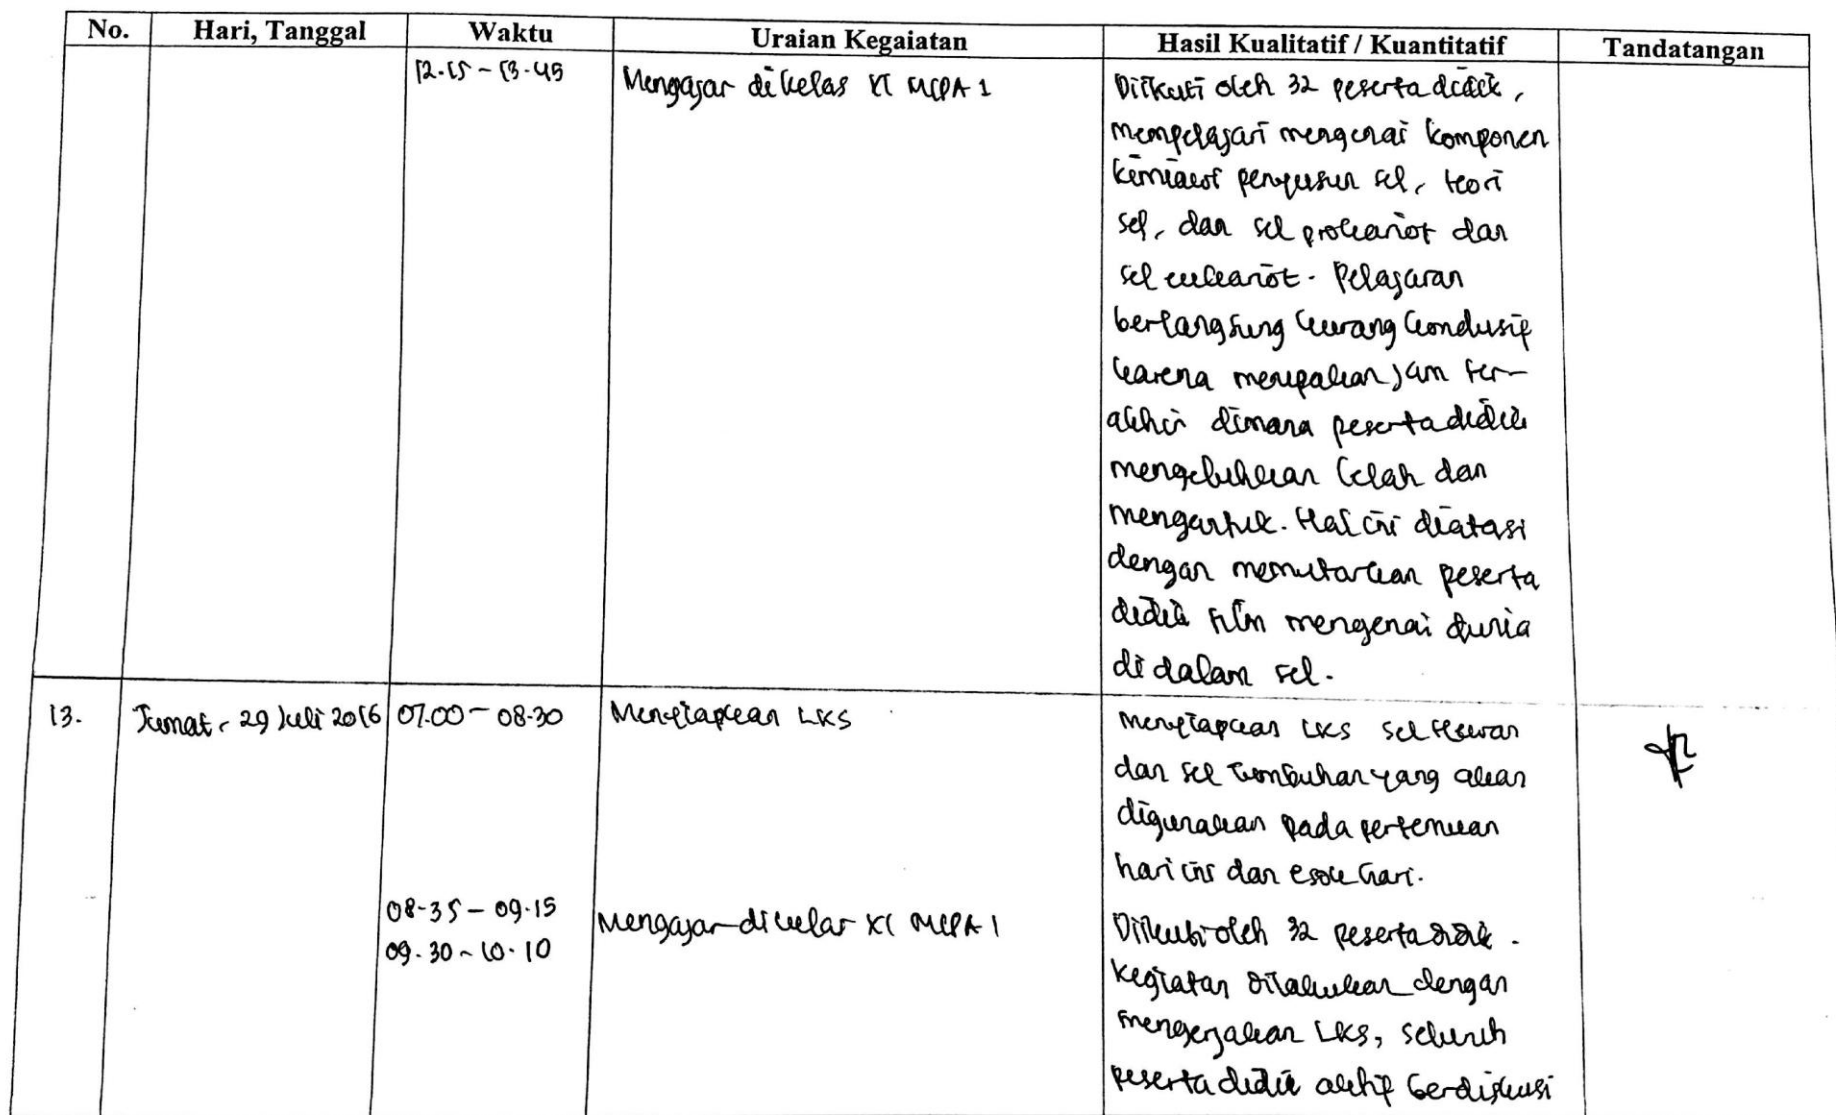 No. Hari, Tanggal Waktu Uraian Kegaiatan Hasil Kualitatif / Kuantitatif Tandatangan
12.15 - 13.45 Mengajar di kelas XI MIPA 1 Diikuti oleh 32 peserta didik,
mempelajari mengenai komponen
kimiawi penyusun sel, teori
sel, dan sel prokariot dan
sel eukariot. Pelajaran
berlangsung kurang kondusif
karena merupakan jam ter-
akhir dimana peserta didik
mengeluhkan lelah dan
mengantuk. Hal ini diatasi
dengan memutarkan peserta
didik film mengenai dunia
di dalam sel.
13. Jumat, 29 Juli 2016 07.00 - 08.30 Menyiapkan LKS Menyiapkan LKS sel Hewan
dan sel Tumbuhan yang akan
digunakan pada pertemuan
hari ini dan esok hari.
08.35 - 09.15 Mengajar di kelas XI MIPA 1 Diikuti oleh 32 peserta didik.
09.30 - 10.10 Kegiatan dilakukan dengan
mengerjakan LKS, seluruh
peserta didik aktif berdiskusi